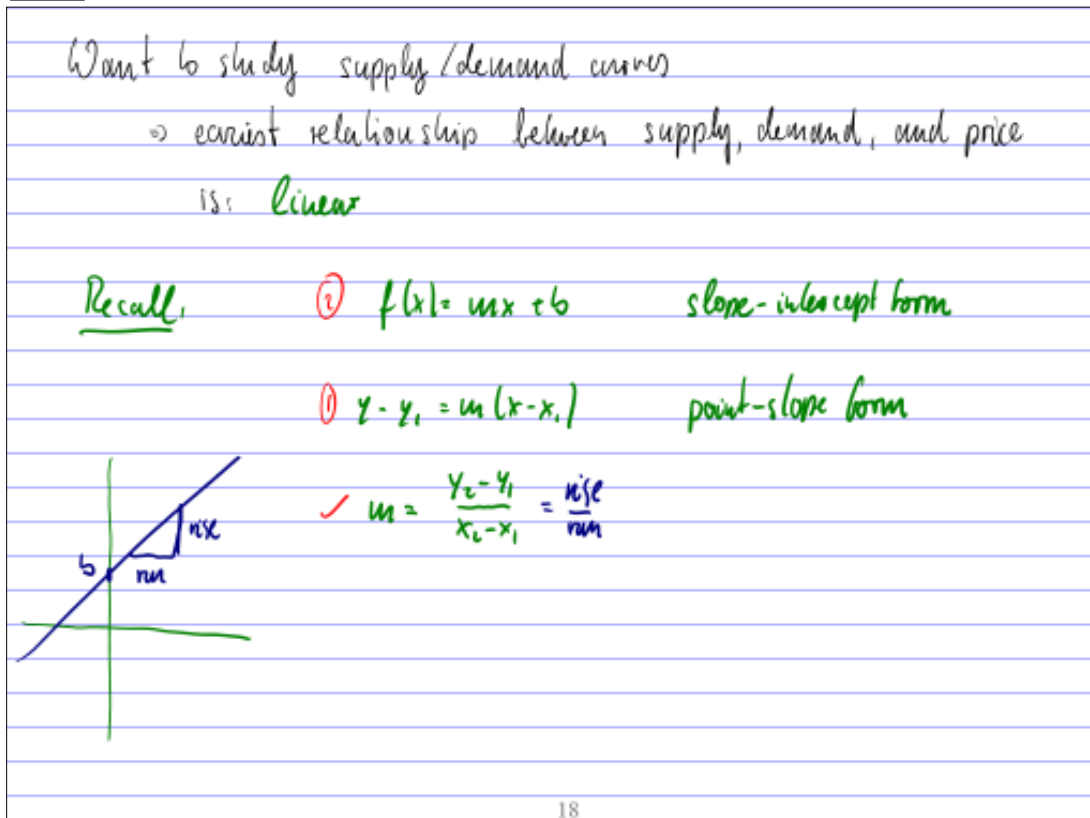 Want to study supply/demand curves
⇒ easiest relationship between supply, demand, and price
is: linear
Recall: ② f(x) = mx + b slope-intercept form
① y - y₁ = m(x - x₁) point-slope form
✓ m = (y₂ - y₁)/(x₂ - x₁) = rise/run
rise
b
run
18